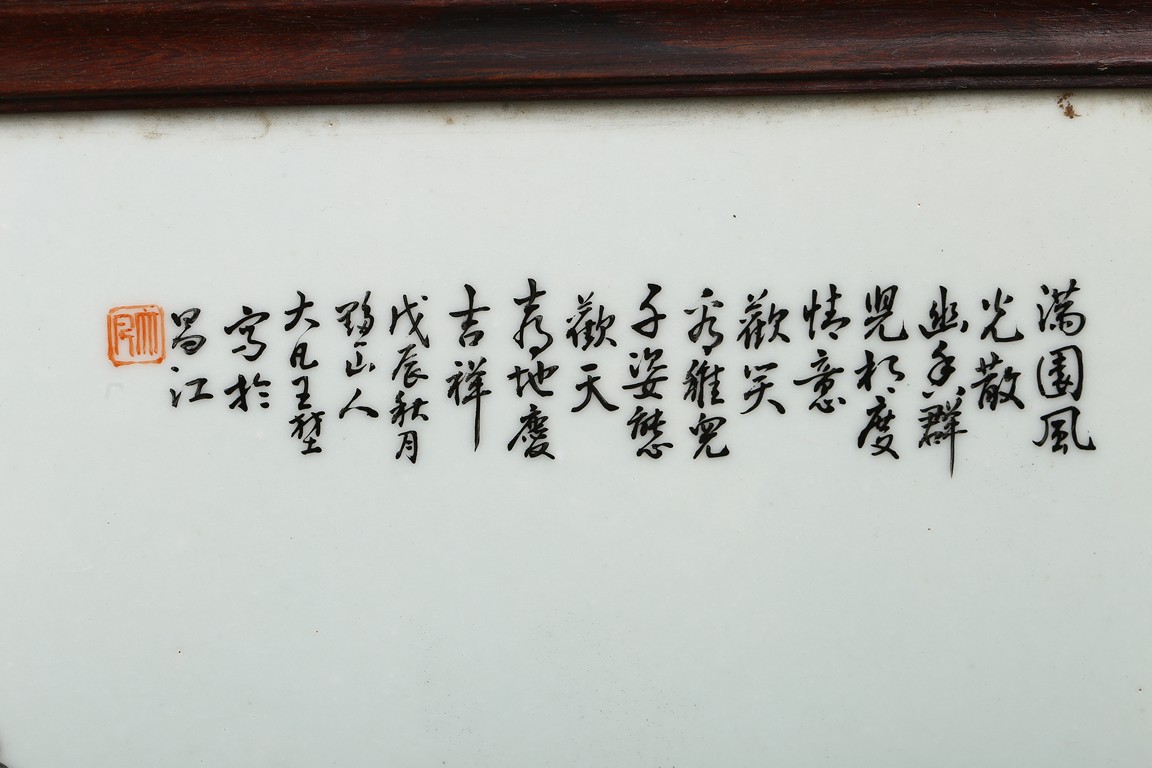 满園風
光散
幽香群
児相度
情意
歡笑
看雅兒
子姿態
歡天
喜地慶
吉祥
戊辰秋月
黟山人
大凡王堃
寫於
昌江
大凡